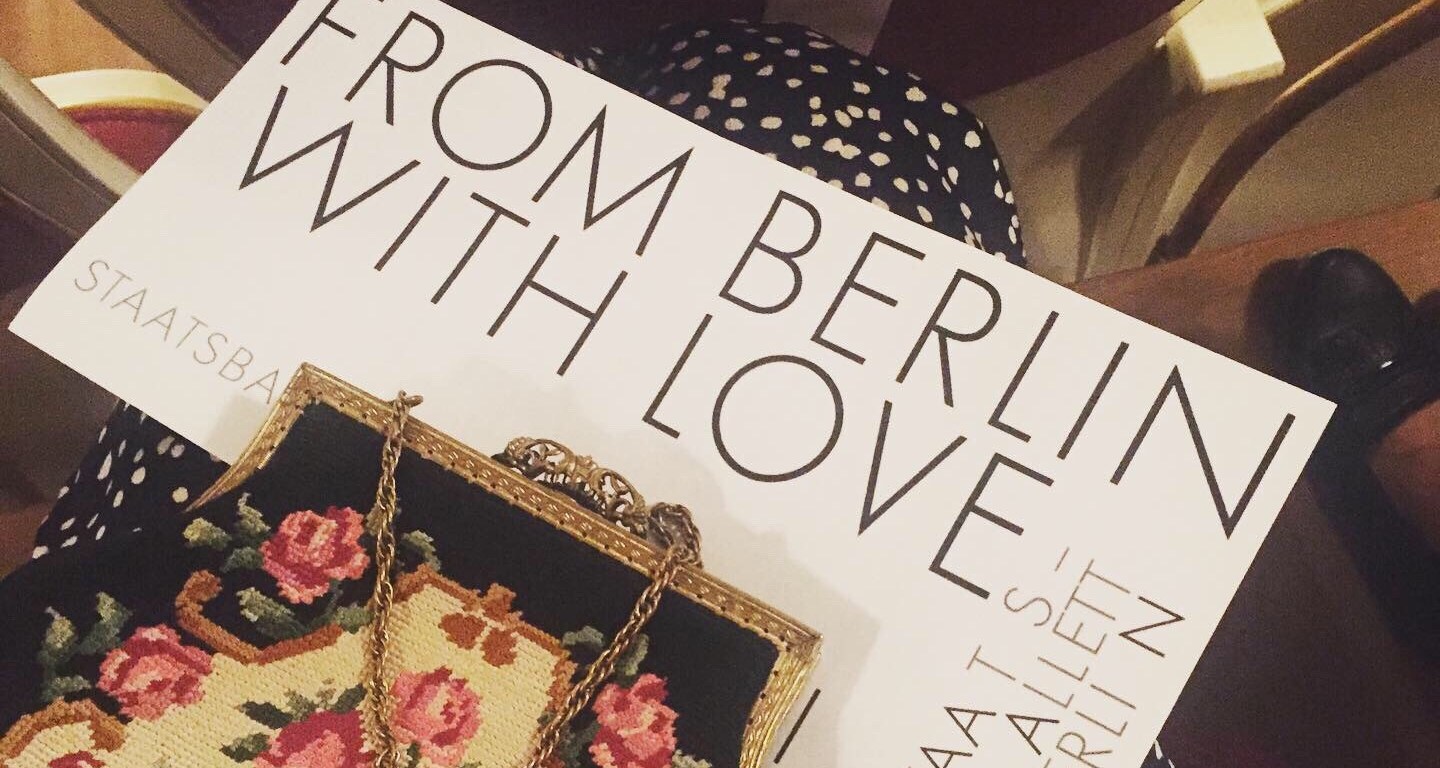 FROM BERLIN
WITH LOVE
STAATSBA
AAT S–
ALLETT
ERLI N